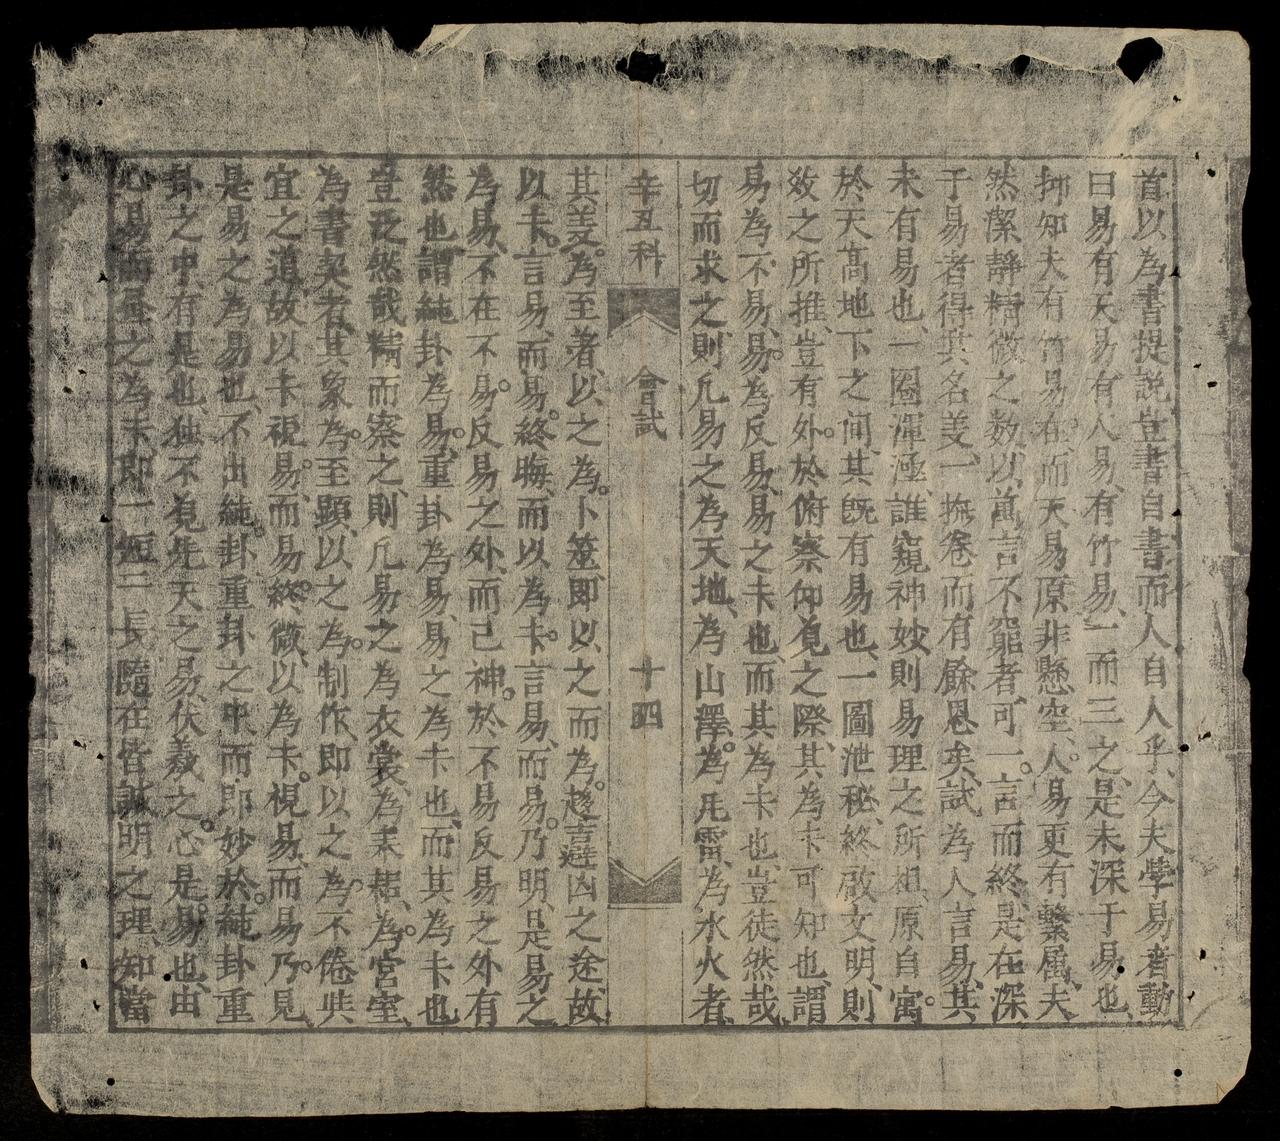 首以為書提説豈書自書而人自人乎、今夫學易者動
曰易有天易有人易、有竹易、一而三之、是未深于易也、
抑知夫有竹易在、而天易原非懸空、人易更有繫屬、夫
然潔靜精微之数、以萬言不窮者、可一言而終、是在深
于易者得其名义、一撫卷而有餘恩矣、試為人言易、其
未有易也、一圈渾涵、誰窺神妙、則易理之所祖、原自寓
於天高地下之间、其既有易也、一圖泄秘、終啟文明、則
效之所推、豈有外於俯察仰覓之際、其為卡可知也、謂
易為不易、易為反易、易之卡也、而其為卡也、豈徒然哉、
切而求之、則凡易之為天地、為山澤、為風雷、為水火者、
辛丑科 會試 十四
其义為至著、以之為卜筮、即以之而為趨吉避凶之途、故
以卡言易、而易終晦、而以為卡言易、而易乃明、是易之
為易、不在不易反易之外、而己神於不易反易之外有
然也、謂純卦為易、重卦為易、易之為卡也、而其為卡也
豈泛然哉、精而察之、則凡易之為衣裳、為耒耜、為宮室、
為書契者、其象為至顯、以之為制作、即以之為不倦與
宜之道、故以卡視易、而易終微、以為卡視易、而易乃見、
是易之為易也、不出純卦重卦之中、而即妙於純卦重
卦之中有是也、独不覓先天之易、伏羲之心是易也、由
心易而畫之為卡、即一短二長、隨在皆誠明之理、知當